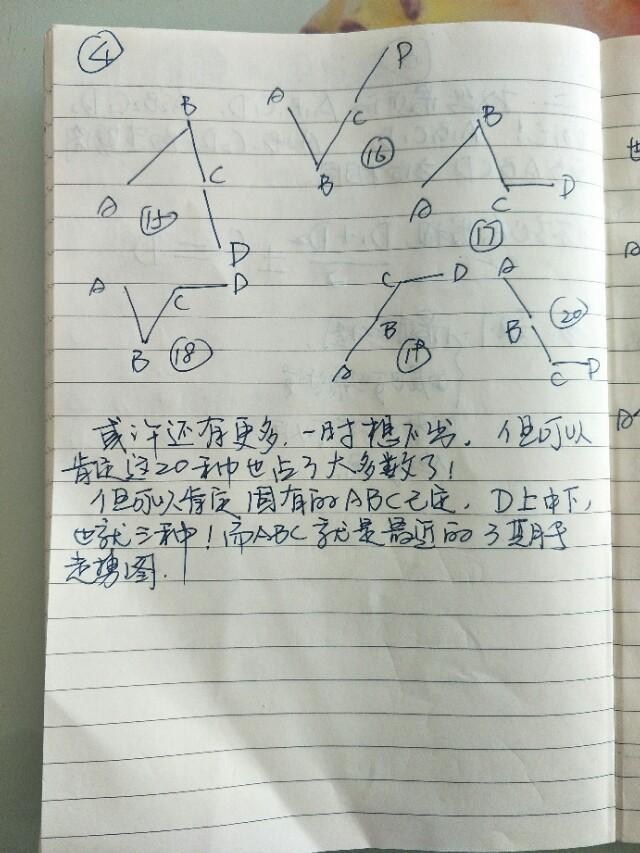 ④
A B C D ⑮
A B C D ⑯
A B C D ⑰
A B C D ⑱
A B C D ⑲
A B C D ⑳
或许还有更多,一时想不出,但可以
肯定这20种也占了大多数了!
但可以肯定,因有的ABC已定,D上中下,
也就三种!而ABC就是最近的3期
走势图.